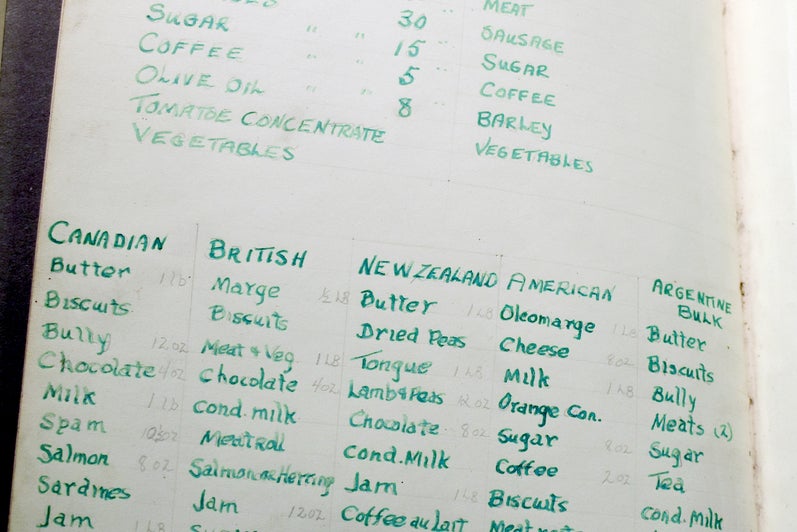 SUGAR " " 30 "
COFFEE " " 15 "
OLIVE OIL " " 5 "
TOMATOE CONCENTRATE 8
VEGETABLES
MEAT
SAUSAGE
SUGAR
COFFEE
BARLEY
VEGETABLES
CANADIAN
Butter 1 lb
Biscuits
Bully 12 oz
Chocolate 4 oz
Milk 1 lb
Spam
Salmon 8 oz
Sardines
Jam 1 LB
BRITISH
Marge ½ LB
Biscuits
Meat & Veg. 1 LB
Chocolate 4 oz
Cond. milk
Meatroll
Salmon or Herring
Jam 12 oz
NEW ZEALAND
Butter 1 LB
Dried Peas
Tongue 1 LB
Lamb & Peas 12 oz
Chocolate 8 oz
Cond. Milk
Jam 1 LB
Coffee au Lait
AMERICAN
Oleomarge 1 LB
Cheese 8 oz
Milk 1 LB
Orange Con.
Sugar 8 oz
Coffee 2 oz
Biscuits
ARGENTINE
BULK
Butter
Biscuits
Bully
Meats (2)
Sugar
Tea
Cond. Milk